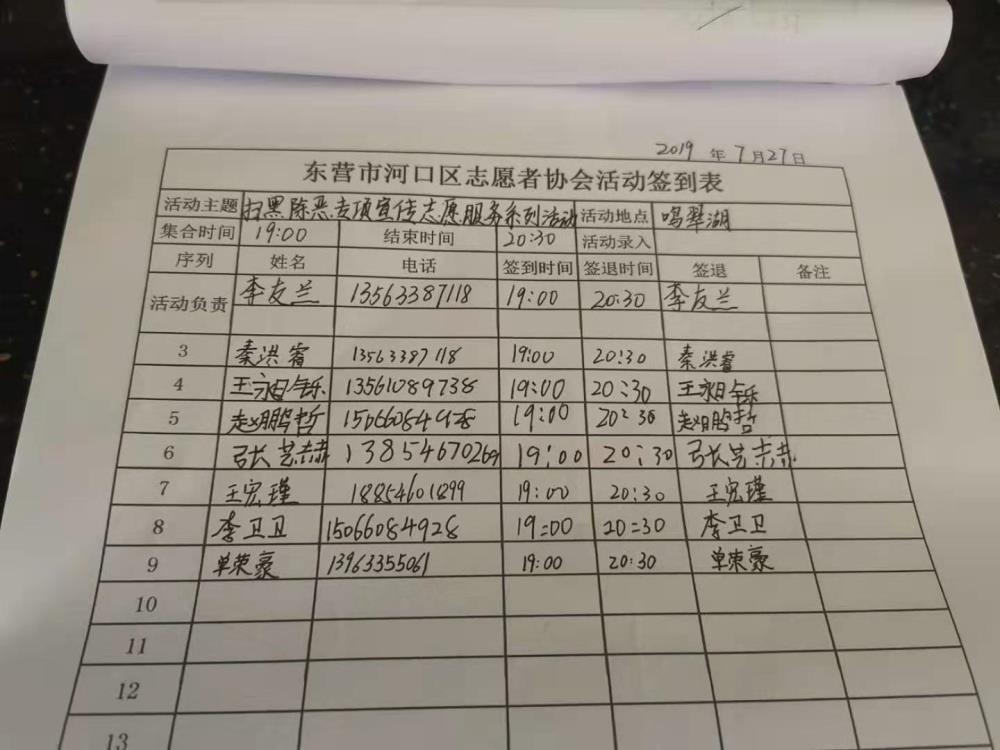 2019 年 7 月 27 日
东营市河口区志愿者协会活动签到表
活动主题 扫黑除恶专项宣传志愿服务系列活动 活动地点 鸣翠湖
集合时间 19:00 结束时间 20:30 活动录入
序列 姓名 电话 签到时间 签退时间 签退 备注
活动负责 李友兰 13563387118 19:00 20:30 李友兰
3 秦洪睿 13563387118 19:00 20:30 秦洪睿
4 王永铄 13561089738 19:00 20:30 王永铄
5 赵鹏哲 15066084928 19:00 20:30 赵鹏哲
6 张艺赫 13854670269 19:00 20:30 张艺赫
7 王宏瑾 18854601899 19:00 20:30 王宏瑾
8 李卫卫 15066084928 19:00 20:30 李卫卫
9 单荣豪 13963355061 19:00 20:30 单荣豪
10
11
12
13